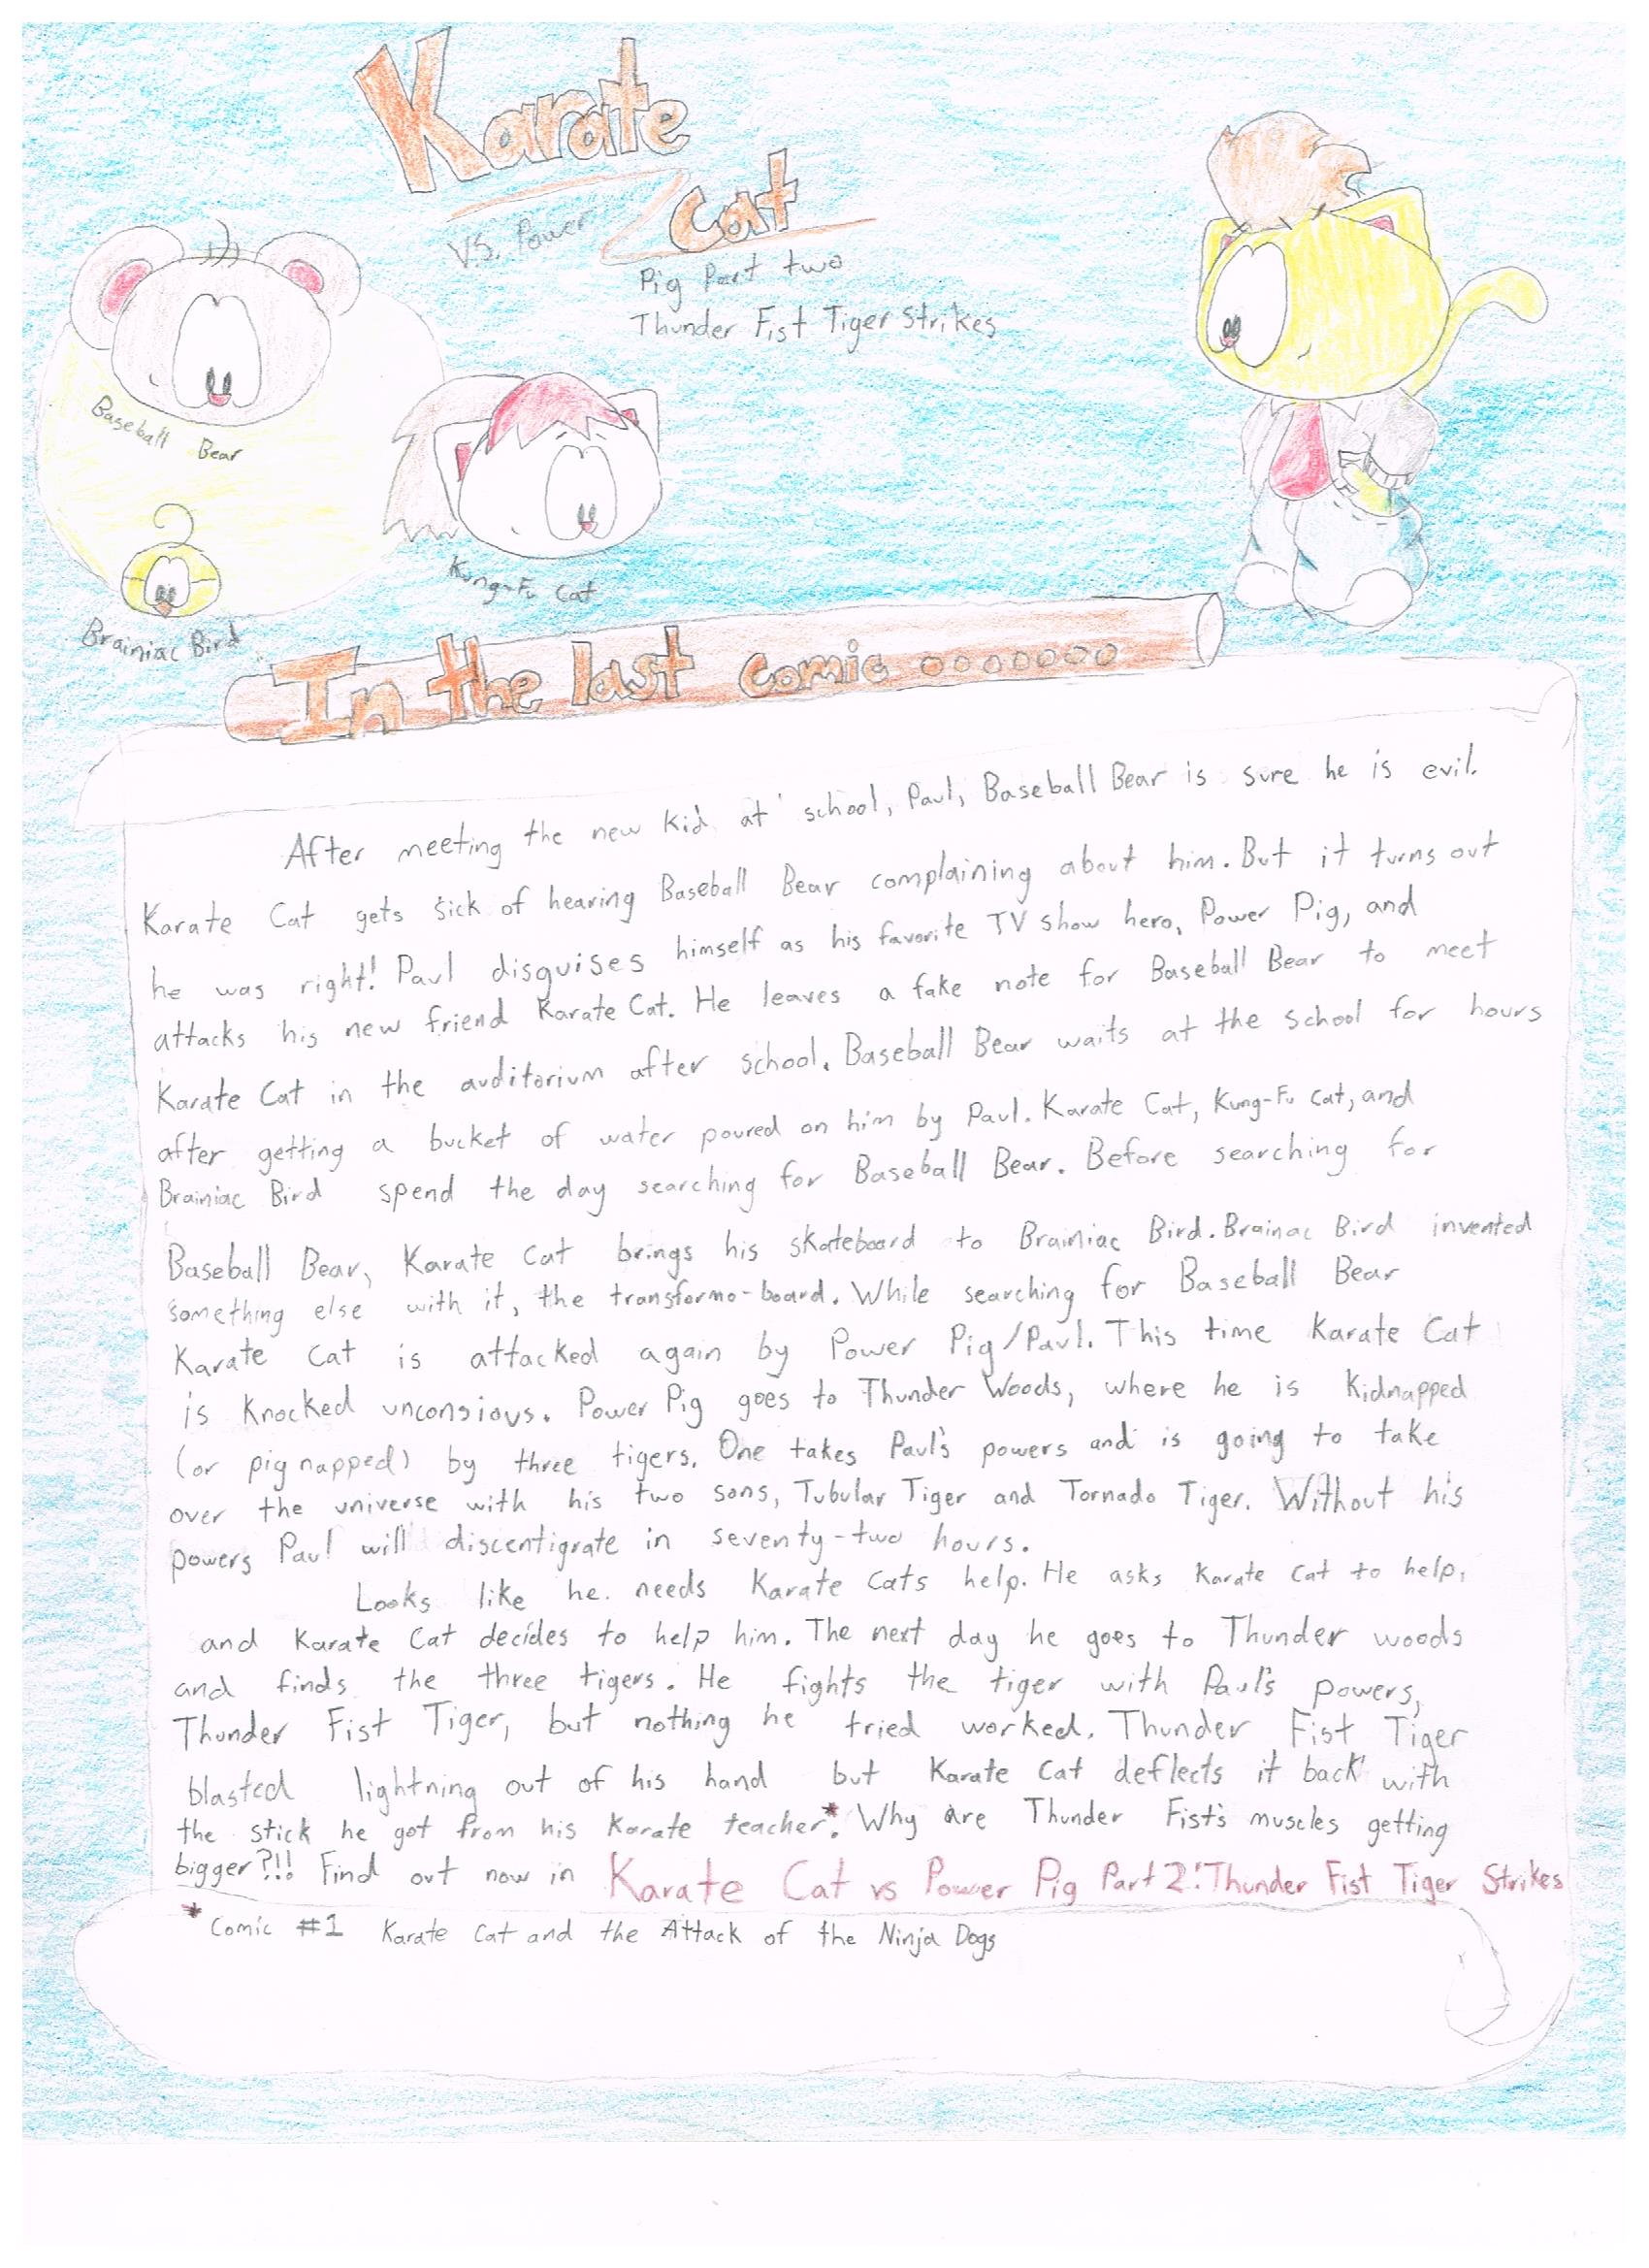 Karate
Cat
V.S. Power
Pig Part two
Thunder Fist Tiger Strikes
Baseball Bear
Kung-Fu Cat
Brainiac Bird
In the last comic .......
After meeting the new kid at school, Paul, Baseball Bear is sure he is evil.
Karate Cat gets sick of hearing Baseball Bear complaining about him. But it turns out
he was right! Paul disguises himself as his favorite TV show hero, Power Pig, and
attacks his new friend Karate Cat. He leaves a fake note for Baseball Bear to meet
Karate Cat in the auditorium after school. Baseball Bear waits at the school for hours
after getting a bucket of water poured on him by Paul. Karate Cat, Kung-Fu Cat, and
Brainiac Bird spend the day searching for Baseball Bear. Before searching for
Baseball Bear, Karate Cat brings his skateboard to Brainiac Bird. Brainac Bird invented
something else with it, the transformo-board. While searching for Baseball Bear
Karate Cat is attacked again by Power Pig/Paul. This time Karate Cat
is knocked unconsious. Power Pig goes to Thunder Woods, where he is kidnapped
(or pignapped) by three tigers. One takes Paul's powers and is going to take
over the universe with his two sons, Tubular Tiger and Tornado Tiger. Without his
powers Paul will discentigrate in seventy-two hours.
Looks like he needs Karate Cats help. He asks Karate Cat to help,
and Karate Cat decides to help him. The next day he goes to Thunder woods
and finds the three tigers. He fights the tiger with Paul's powers,
Thunder Fist Tiger, but nothing he tried worked. Thunder Fist Tiger
blasted lightning out of his hand but Karate Cat deflects it back with
the stick he got from his Karate teacher.* Why are Thunder Fist's muscles getting
bigger?!!! Find out now in Karate Cat vs Power Pig Part 2: Thunder Fist Tiger Strikes
* Comic #1 Karate Cat and the Attack of the Ninja Dogs